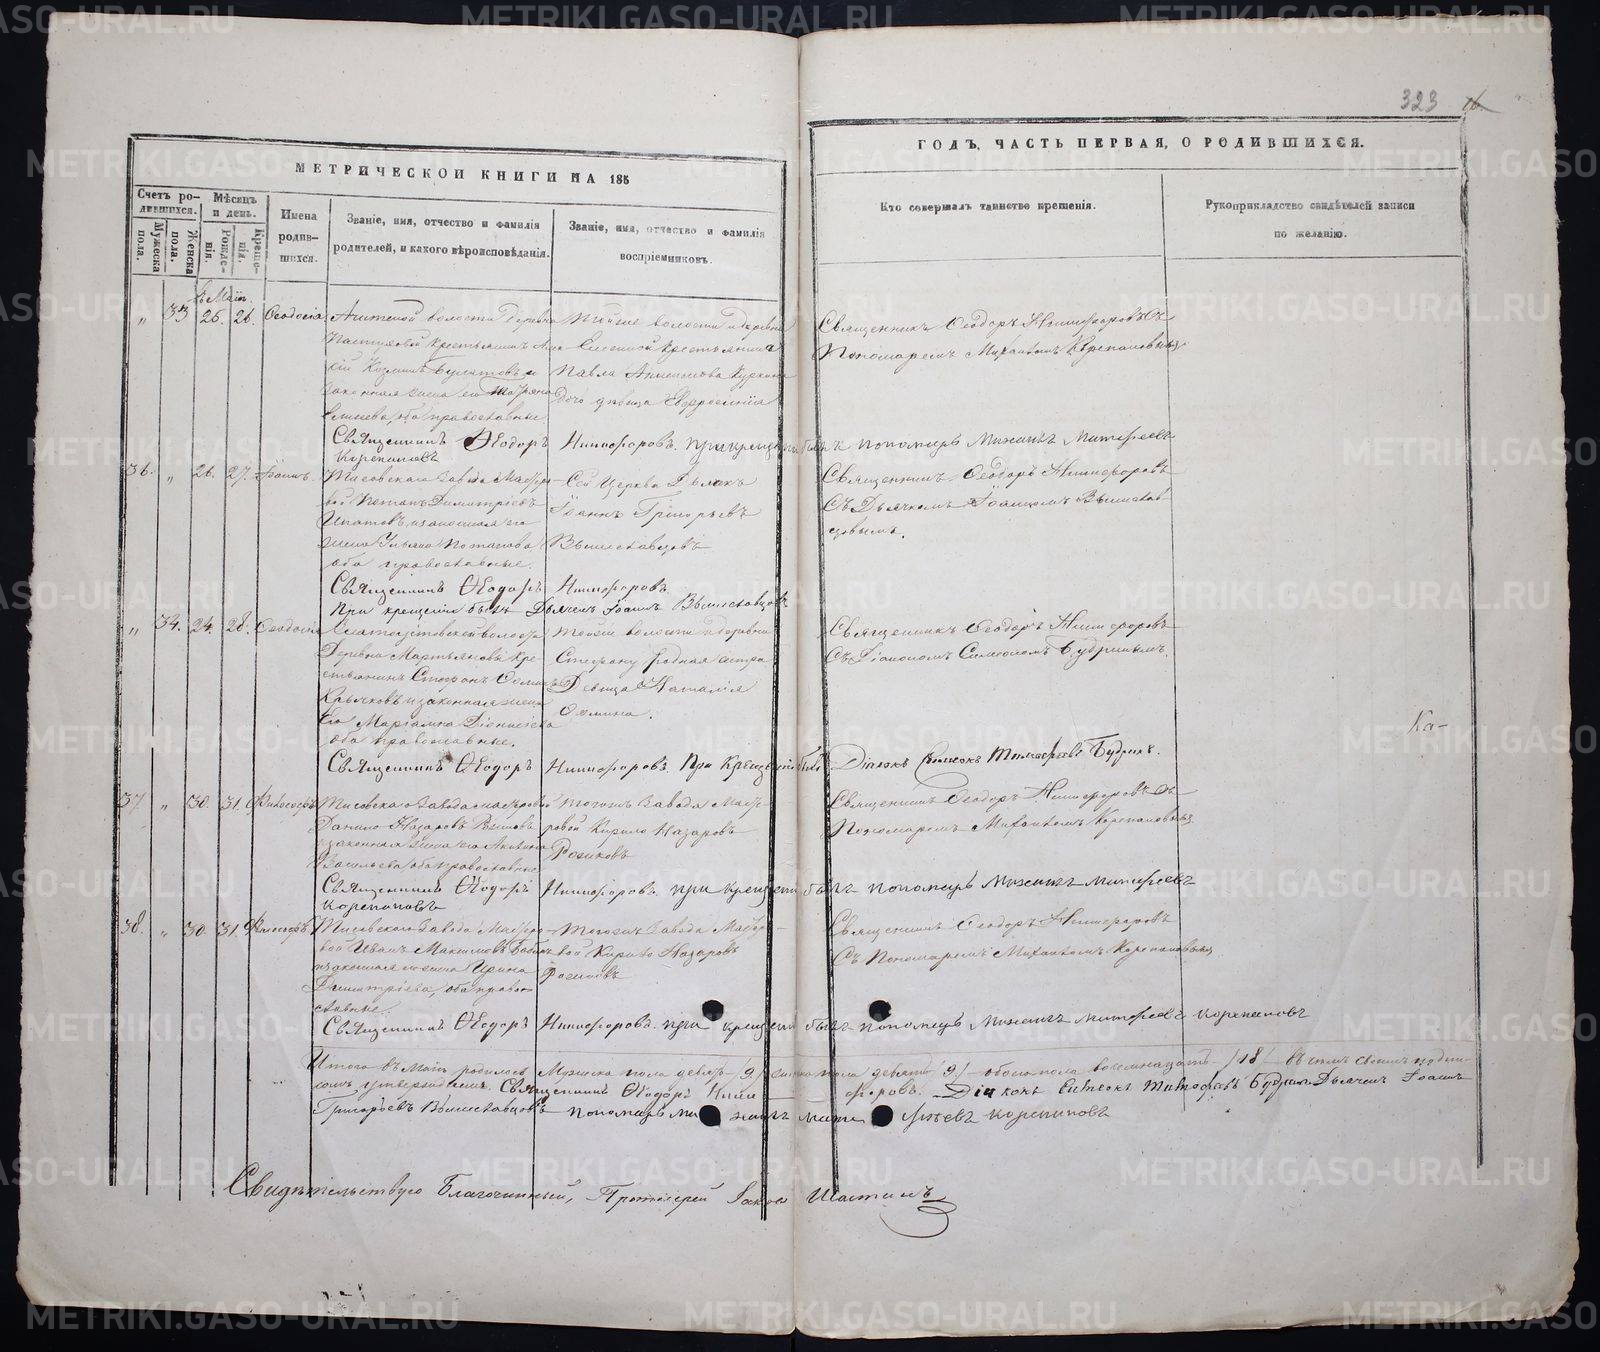 323
МЕТРИЧЕСКОЙ КНИГИ НА 185
ГОДЪ, ЧАСТЬ ПЕРВАЯ, О РОДИВШИХСЯ.
Счетъ родившихся.
Мужеска пола.
Женска пола.
Мѣсяцъ и день.
Рожденія.
Крещенія.
Имена родившихся.
Званіе, имя, отчество и фамилія
родителей, и какого вѣроисповѣданія.
Званіе, имя, отчество и фамилія
воспріемниковъ.
Кто совершалъ таинство крещенія.
Рукоприкладство свидѣтелей записи
по желанію.
въ Маіи.
„ 33 25. 26. Ѳеодосія
Ачитской волости деревни
крестьянинъ
Козминъ Булатовъ и
законная жена его
оба православные
Тойже волости и деревни
крестьянина
Павла
дочь дѣвица Евфросинія
Священникъ Ѳеодоръ Никифоровъ съ
Пономаремъ Михаиломъ Корепановымъ
Священникъ Ѳеодоръ Никифоровъ. при крещеніи былъ пономарь Михаилъ Матфеевъ
Корепановъ
36. „ 26. 27. Іоаннъ
Тисовскаго Завода Мастеро-
вой Потапъ Димитріевъ
Ипатовъ, и законная его
жена Ульяна Потапова
оба православные.
Сей Церкви Дьячекъ
Іоаннъ Григорьевъ
Вышеславцовъ
Священникъ Ѳеодоръ Никифоровъ
съ Дьячкомъ Іоанномъ Вышеслав-
цовымъ.
Священникъ Ѳеодоръ Никифоровъ.
При крещеніи былъ Дьячекъ Іоаннъ Вышеславцовъ
„ 34. 24. 28. Ѳеодосія
Златоустовской волости
Деревни Мартьяновы кре-
стьянинъ Стефанъ
Крючковъ и законная жена
его Маріамна Діонисіева
оба православные.
Тойже волости и деревни
Стефану родная сестра
Девица Наталія
Ѳомина.
Священникъ Ѳеодоръ Никифоровъ
съ Діакономъ Симеономъ Будринымъ.
Ка-
Священникъ Ѳеодоръ Никифоровъ. При Крещеніи былъ Діаконъ Симеонъ Тимофеевъ Будринъ.
37 „ 30. 31. Философъ
Тисовскаго Завода мастеровой
Данило Назаровъ
законная жена его Акилина
Васильева оба православные
Тогожъ Завода Масте-
ровой Кирило Назаровъ
Розиновъ
Священникъ Ѳеодоръ Никифоровъ съ
Пономаремъ Михаиломъ Корепановымъ
Священникъ Ѳеодоръ Никифоровъ. при крещеніи былъ пономарь Михаилъ Матфеевъ
Корепановъ
38. „ 30. 31 Философъ
Тисовскаго Завода Мастеро-
вой Иванъ Максимовъ
и законная его жена Ирина
Димитріева, оба право-
славные.
Тогожъ Завода Мастеро-
вой Кирило Назаровъ
Розиновъ
Священникъ Ѳеодоръ Никифоровъ
съ Пономаремъ Михаиломъ Корепановымъ
Священникъ Ѳеодоръ Никифоровъ. при крещеніи былъ пономарь Михаилъ Матфеевъ Корепановъ
Итого въ Маіи родилось Мужеска пола девять /9/ женска пола девять /9/ – обоего пола восемнадцать /18/ – въ чемъ своимъ подпи-
сомъ утверждаемъ. Священникъ Ѳеодоръ Никифоровъ. Діаконъ Симеонъ Тимофеевъ Будринъ. Дьячекъ Іоаннъ
Григорьевъ Вышеславцовъ пономарь Михаилъ Матфеевъ Корепановъ
Свидѣтельствую Благочинный, Протоіерей Іаковъ Шастинъ